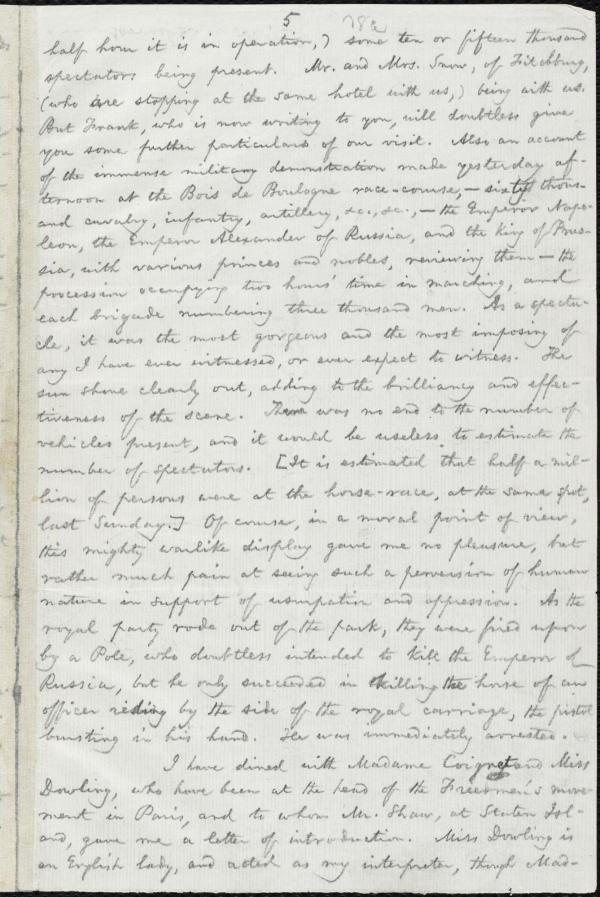 5 78a
half hour it is in operation,) some ten or fifteen thousand
spectators being present. Mr. and Mrs. Snow, of Fitchburg,
(who are stopping at the same hotel with us,) being with us.
But Frank, who is now writing to you, will doubtless give
you some further particulars of our visit. Also an account
of the immense military demonstration made yesterday af-
ternoon at the Bois de Boulogne race-course,—sixty thous-
and cavalry, infantry, artillery, &c., &c.,—the Emperor Napo-
leon, the Emperor Alexander of Russia, and the King of Prus-
sia, with various princes and nobles, reviewing them—the
procession occupying two hours' time in marching, and
each brigade numbering three thousand men. As a specta-
cle, it was the most gorgeous and the most imposing of
any I have ever witnessed, or ever expect to witness. The
sun shone clearly out, adding to the brilliancy and effec-
tiveness of the scene. There was no end to the number of
vehicles present, and it would be useless to estimate the
number of spectators. [It is estimated that half a mil-
lion of persons were at the horse-race, at the same spot,
last Sunday.] Of course, in a moral point of view,
this mighty warlike display gave me no pleasure, but
rather much pain at seeing such a perversion of human
nature in support of usurpation and oppression. As the
royal party rode out of the park, they were fired upon
by a Pole, who doubtless intended to kill the Emperor of
Russia, but he only succeeded in killing the horse of an
officer riding by the side of the royal carriage, the pistol
bursting in his hand. He was immediately arrested.
I have dined with Madame Coignet and Miss
Dowling, who have been at the head of the Freedmen's move-
ment in Paris, and to whom Mr. Shaw, at Staten Isl-
and, gave me a letter of introduction. Miss Dowling is
an English lady, and acted as my interpreter, though Mad-